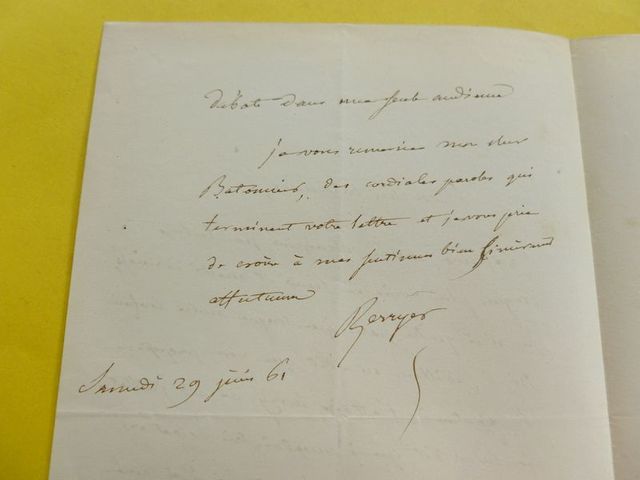 débats dans une seule audience
je vous remercie mon cher
Batonnier, des cordiales paroles qui
terminent votre lettre et je vous prie
de croire à mes sentimens bien sincèrement
affectueux
Berryer
Samedi 29 juin 61